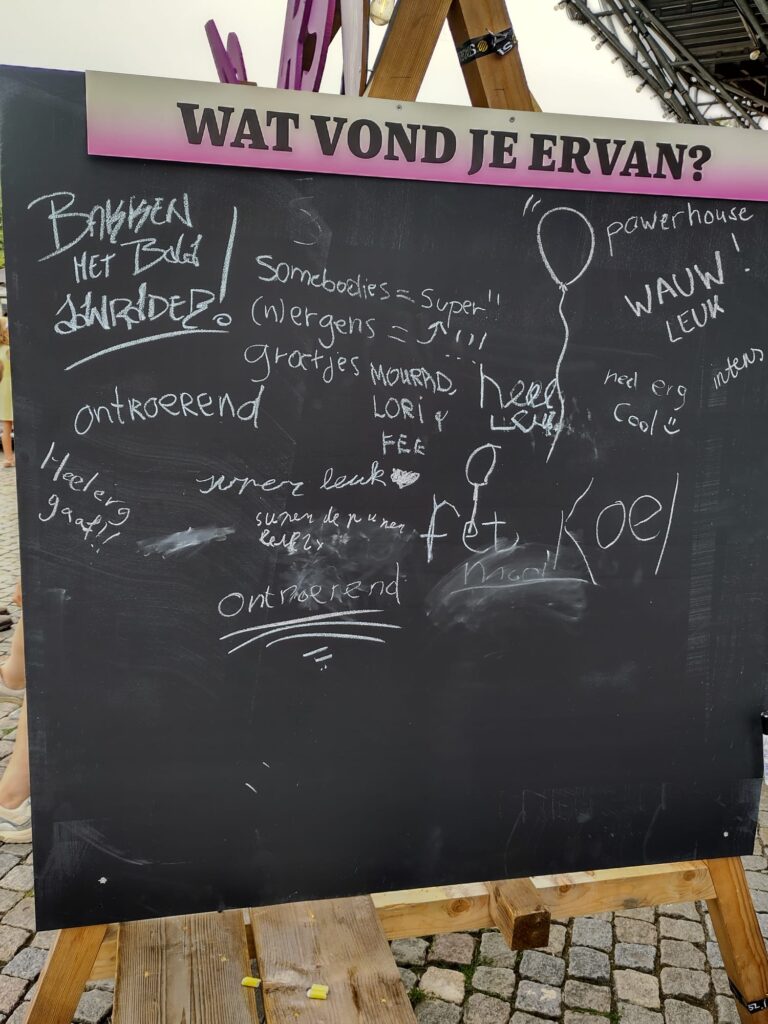 WAT VOND JE ERVAN?
BAKKEN
MET Bald
AANRADER!
Somebodies = Super"
(n)ergens = !!!
groetjes
MOURAD,
LORI &
FEE
powerhouse
WAUW!
LEUK
heel
Leuk
heel erg
Cool
intens
ontroerend
Heel erg
gaaf!!
super leuk
super de puper
leuk
fet
KOEL
mooi
ontroerend